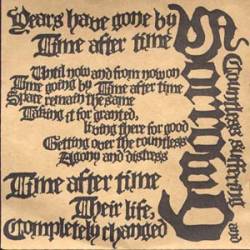 Years have gone by
Time after time
Until now and from now on
Time going by Time after time
Space remain the same
Taking it for granted,
being there for good
Getting over the countless
Agony and distress
Time after time
Their life,
Completely changed
Countless suffering and
Sorrow